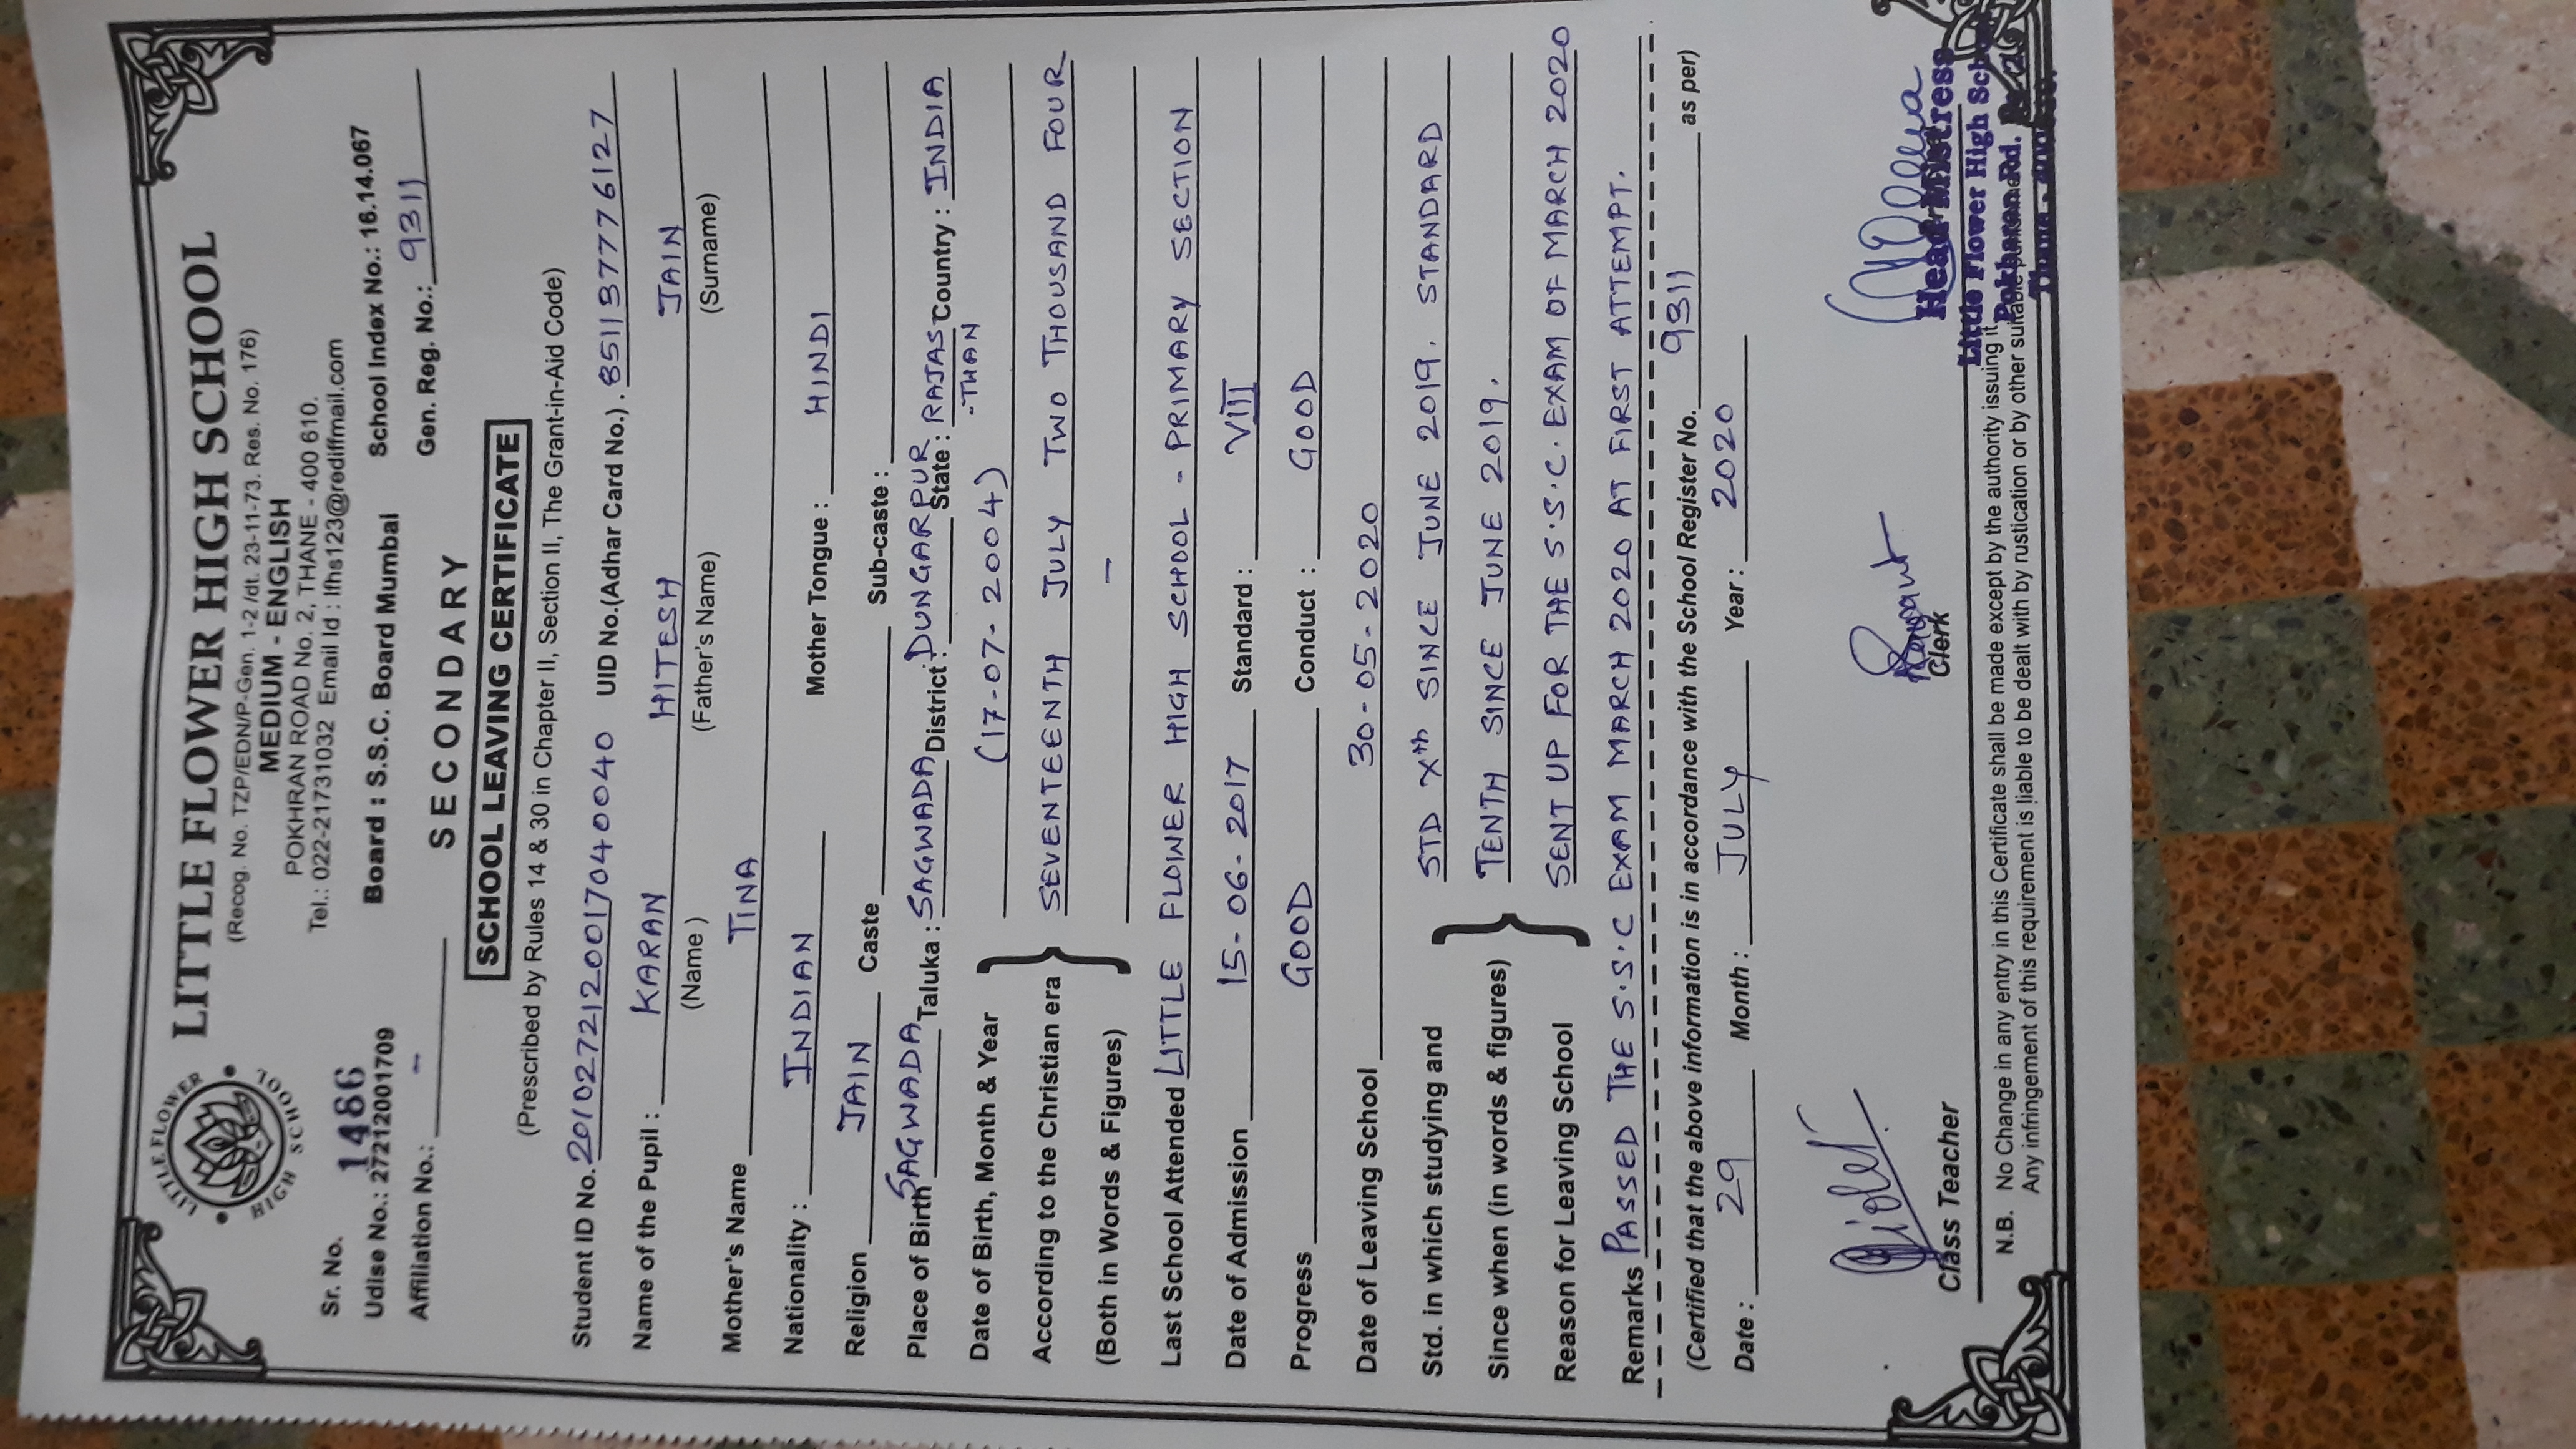 LITTLE FLOWER HIGH SCHOOL
LITTLE FLOWER HIGH SCHOOL
(Recog. No. TZP/EDN/P-Gen. 1-2 /dt. 23-11-73. Res. No. 176)
MEDIUM - ENGLISH
POKHRAN ROAD No. 2, THANE - 400 610.
Tel.: 022-21731032 Email Id : lfhs123@rediffmail.com
Sr. No. 1486
Udise No.: 27212001709 Board : S.S.C. Board Mumbai School Index No.: 16.14.067
Affiliation No.: - Gen. Reg. No.: 9311
SECONDARY
SCHOOL LEAVING CERTIFICATE
(Prescribed by Rules 14 & 30 in Chapter II, Section II, The Grant-in-Aid Code)
Student ID No. 2010272120017040040 UID No.(Adhar Card No.) . 851137776127
Name of the Pupil : KARAN HITESH JAIN
(Name ) (Father's Name) (Surname)
Mother's Name TINA
Nationality : INDIAN Mother Tongue : HINDI
Religion JAIN Caste Sub-caste :
Place of Birth SAGWADA Taluka : SAGWADA District : DUNGARPUR State : RAJAS Country : INDIA
-THAN
Date of Birth, Month & Year (17-07-2004)
According to the Christian era SEVENTEENTH JULY TWO THOUSAND FOUR
(Both in Words & Figures) -
Last School Attended LITTLE FLOWER HIGH SCHOOL - PRIMARY SECTION
Date of Admission 15-06-2017 Standard : VIII
Progress GOOD Conduct : GOOD
Date of Leaving School 30-05-2020
Std. in which studying and STD Xth SINCE JUNE 2019. STANDARD
Since when (in words & figures) TENTH SINCE JUNE 2019.
Reason for Leaving School SENT UP FOR THE S.S.C. EXAM OF MARCH 2020
Remarks PASSED THE S.S.C EXAM MARCH 2020 AT FIRST ATTEMPT.
(Certified that the above information is in accordance with the School Register No. 9311 as per)
Date : 29 Month : JULY Year : 2020
Class Teacher Clerk Head Mistress
Little Flower High School
Pokharan Rd.
N.B. No Change in any entry in this Certificate shall be made except by the authority issuing it.
Any infringement of this requirement is liable to be dealt with by rustication or by other suitable